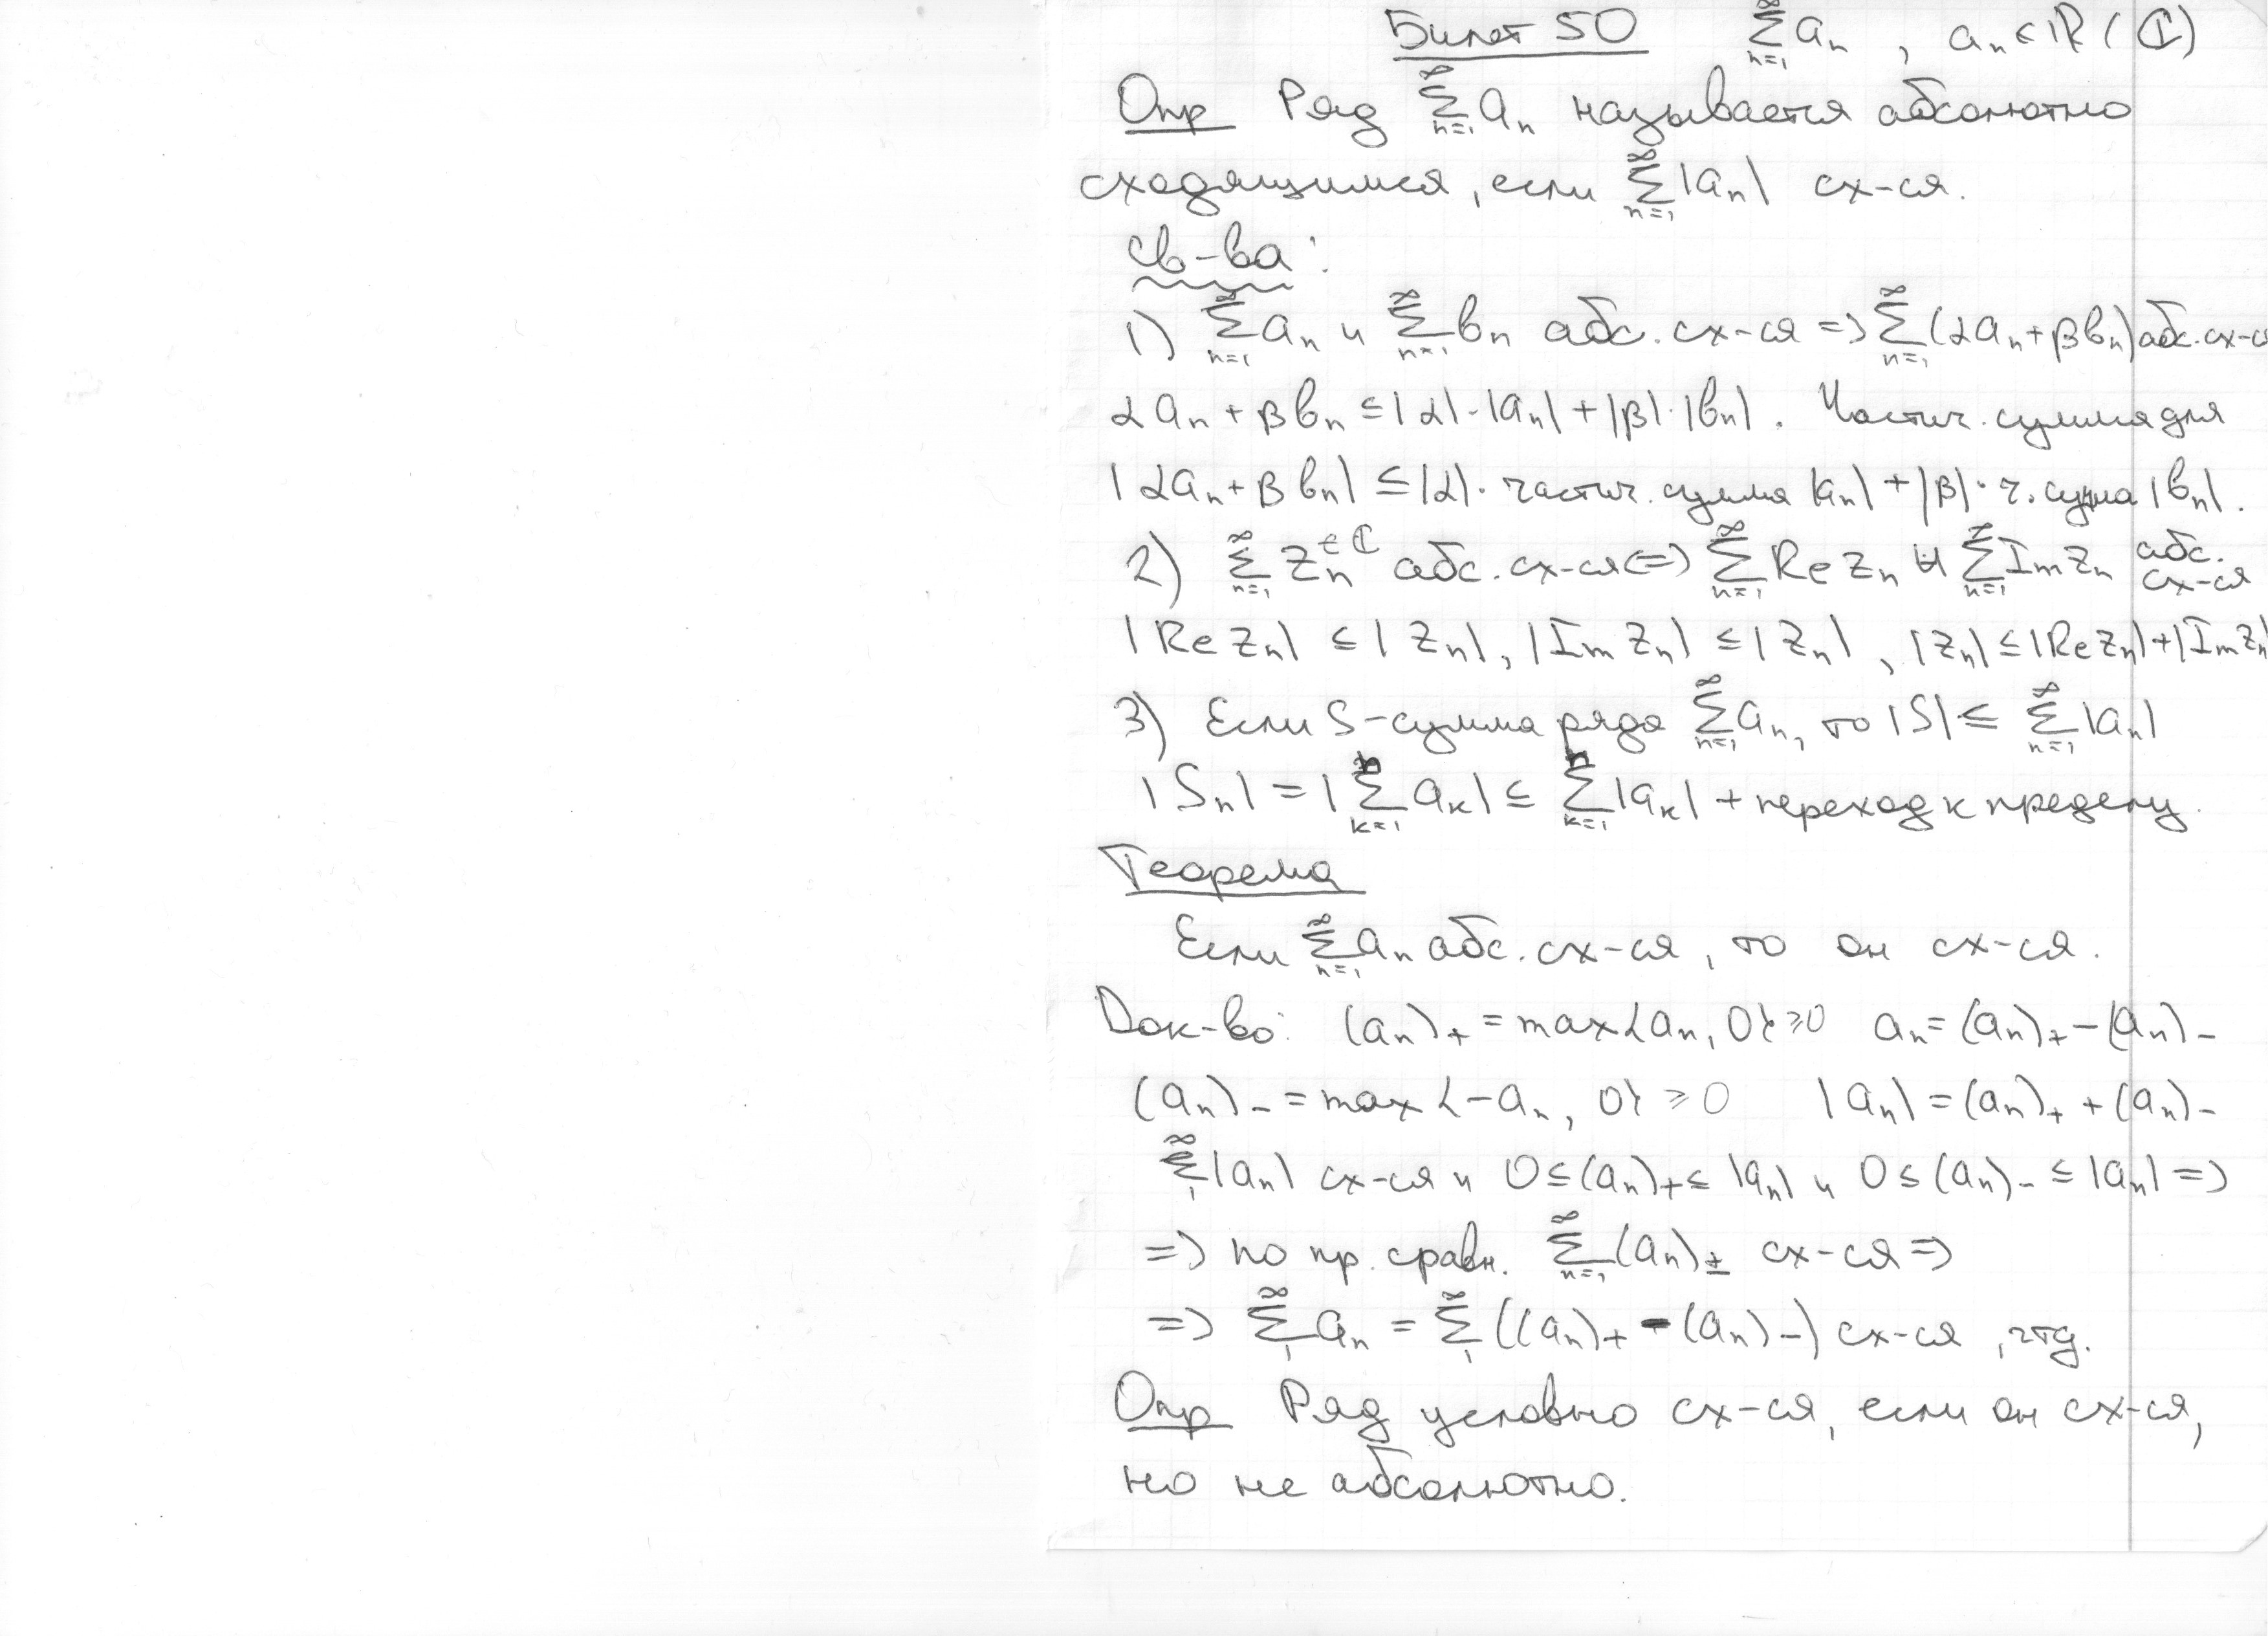 Билет 50 ∑_{n=1}^∞ a_n , a_n ∈ ℝ (ℂ)
Опр Ряд ∑_{n=1}^∞ a_n называется абсолютно
сходящимся, если ∑_{n=1}^∞ |a_n| сх-ся.
Св-ва:
1) ∑_{n=1}^∞ a_n и ∑_{n=1}^∞ b_n абс. сх-ся => ∑_{n=1}^∞ (αa_n + βb_n) абс. сх-ся
αa_n + βb_n ≤ |α|·|a_n| + |β|·|b_n|. Частич. сумма для
|αa_n + βb_n| ≤ |α|· частич. сумма |a_n| + |β|· ч. сумма |b_n|.
2) ∑_{n=1}^∞ z_n^{∈ℂ} абс. сх-ся <=> ∑_{n=1}^∞ Re z_n и ∑_{n=1}^∞ Im z_n абс. сх-ся
|Re z_n| ≤ |z_n|, |Im z_n| ≤ |z_n|, |z_n| ≤ |Re z_n| + |Im z_n|
3) Если S - сумма ряда ∑_{n=1}^∞ a_n, то |S| ≤ ∑_{n=1}^∞ |a_n|
|S_n| = |∑_{k=1}^n a_k| ≤ ∑_{k=1}^n |a_k| + переход к пределу.
Теорема
Если ∑_{n=1}^∞ a_n абс. сх-ся, то он сх-ся.
Док-во: (a_n)_+ = max{a_n, 0} ≥ 0 a_n = (a_n)_+ − (a_n)_−
(a_n)_− = max{−a_n, 0} ≥ 0 |a_n| = (a_n)_+ + (a_n)_−
∑_1^∞ |a_n| сх-ся и 0 ≤ (a_n)_+ ≤ |a_n| и 0 ≤ (a_n)_− ≤ |a_n| =>
=> по пр. сравн. ∑_{n=1}^∞ (a_n)_± сх-ся =>
=> ∑_1^∞ a_n = ∑_1^∞ ((a_n)_+ − (a_n)_−) сх-ся, чтд.
Опр Ряд условно сх-ся, если он сх-ся,
но не абсолютно.